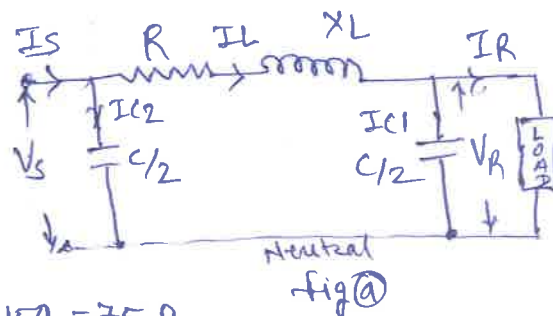 IS R IL XL IR
IC2 IC1
VS C/2 C/2 VR LOAD
Neutral
fig (a)